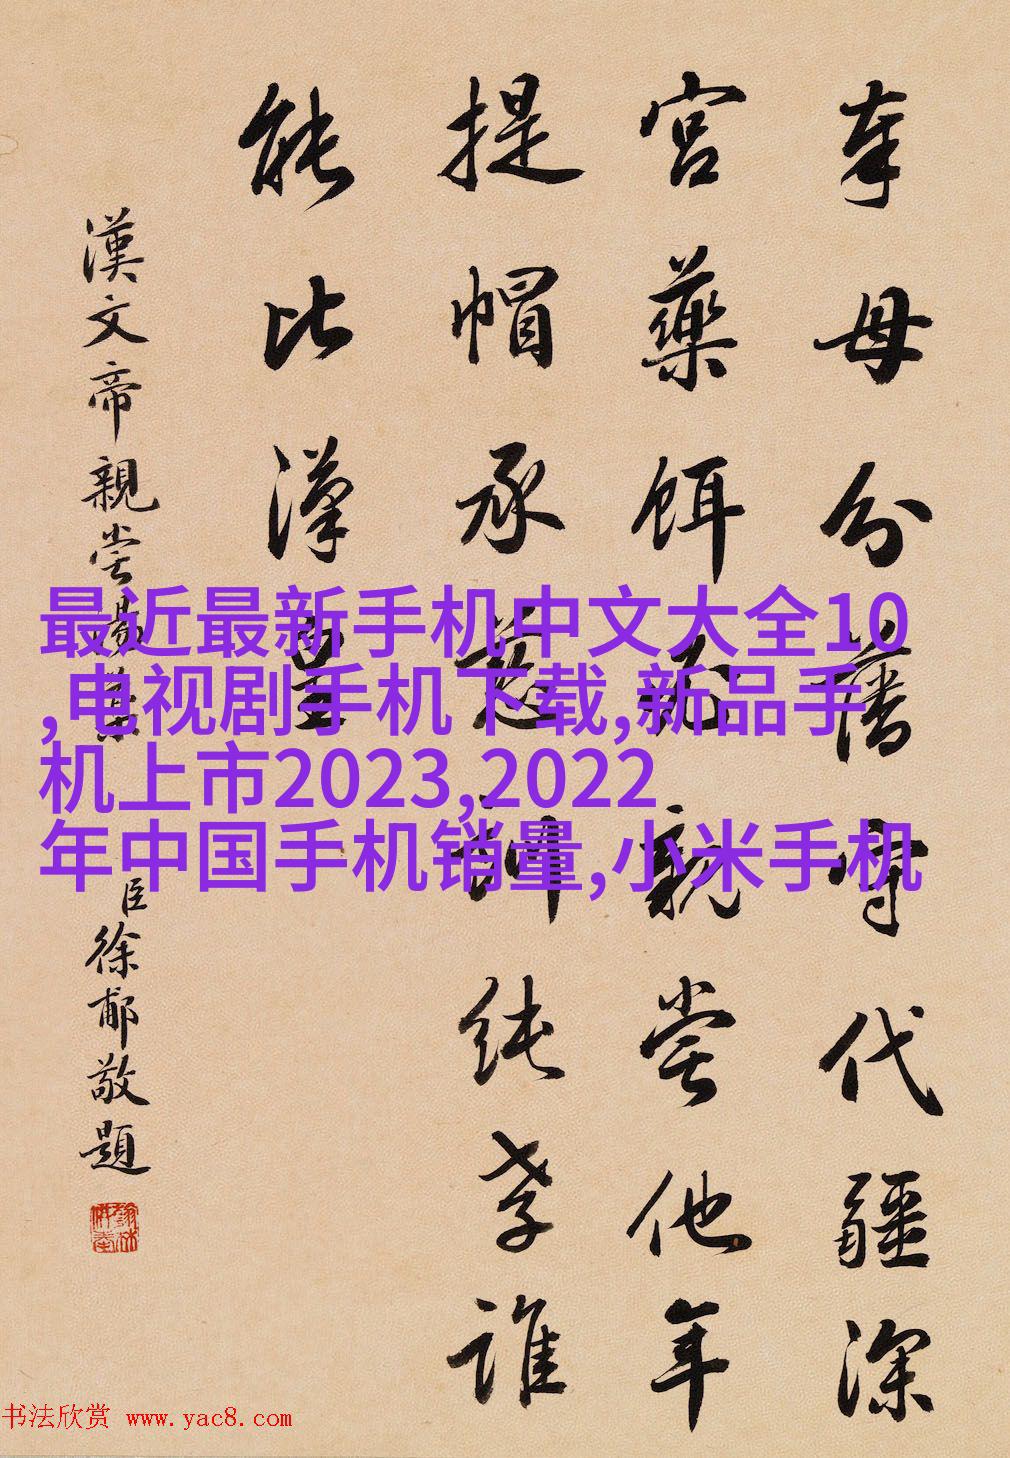 奉母分藩守代疆深
宮藥餌親嘗他年
提帽承慈訓純孝誰
能比漢皇
漢文帝親嘗湯藥
臣徐郙敬題
最近最新手机中文大全10
,电视剧手机下载,新品手
机上市2023,2022
年中国手机销量,小米手机
书法欣赏 www.yac8.com